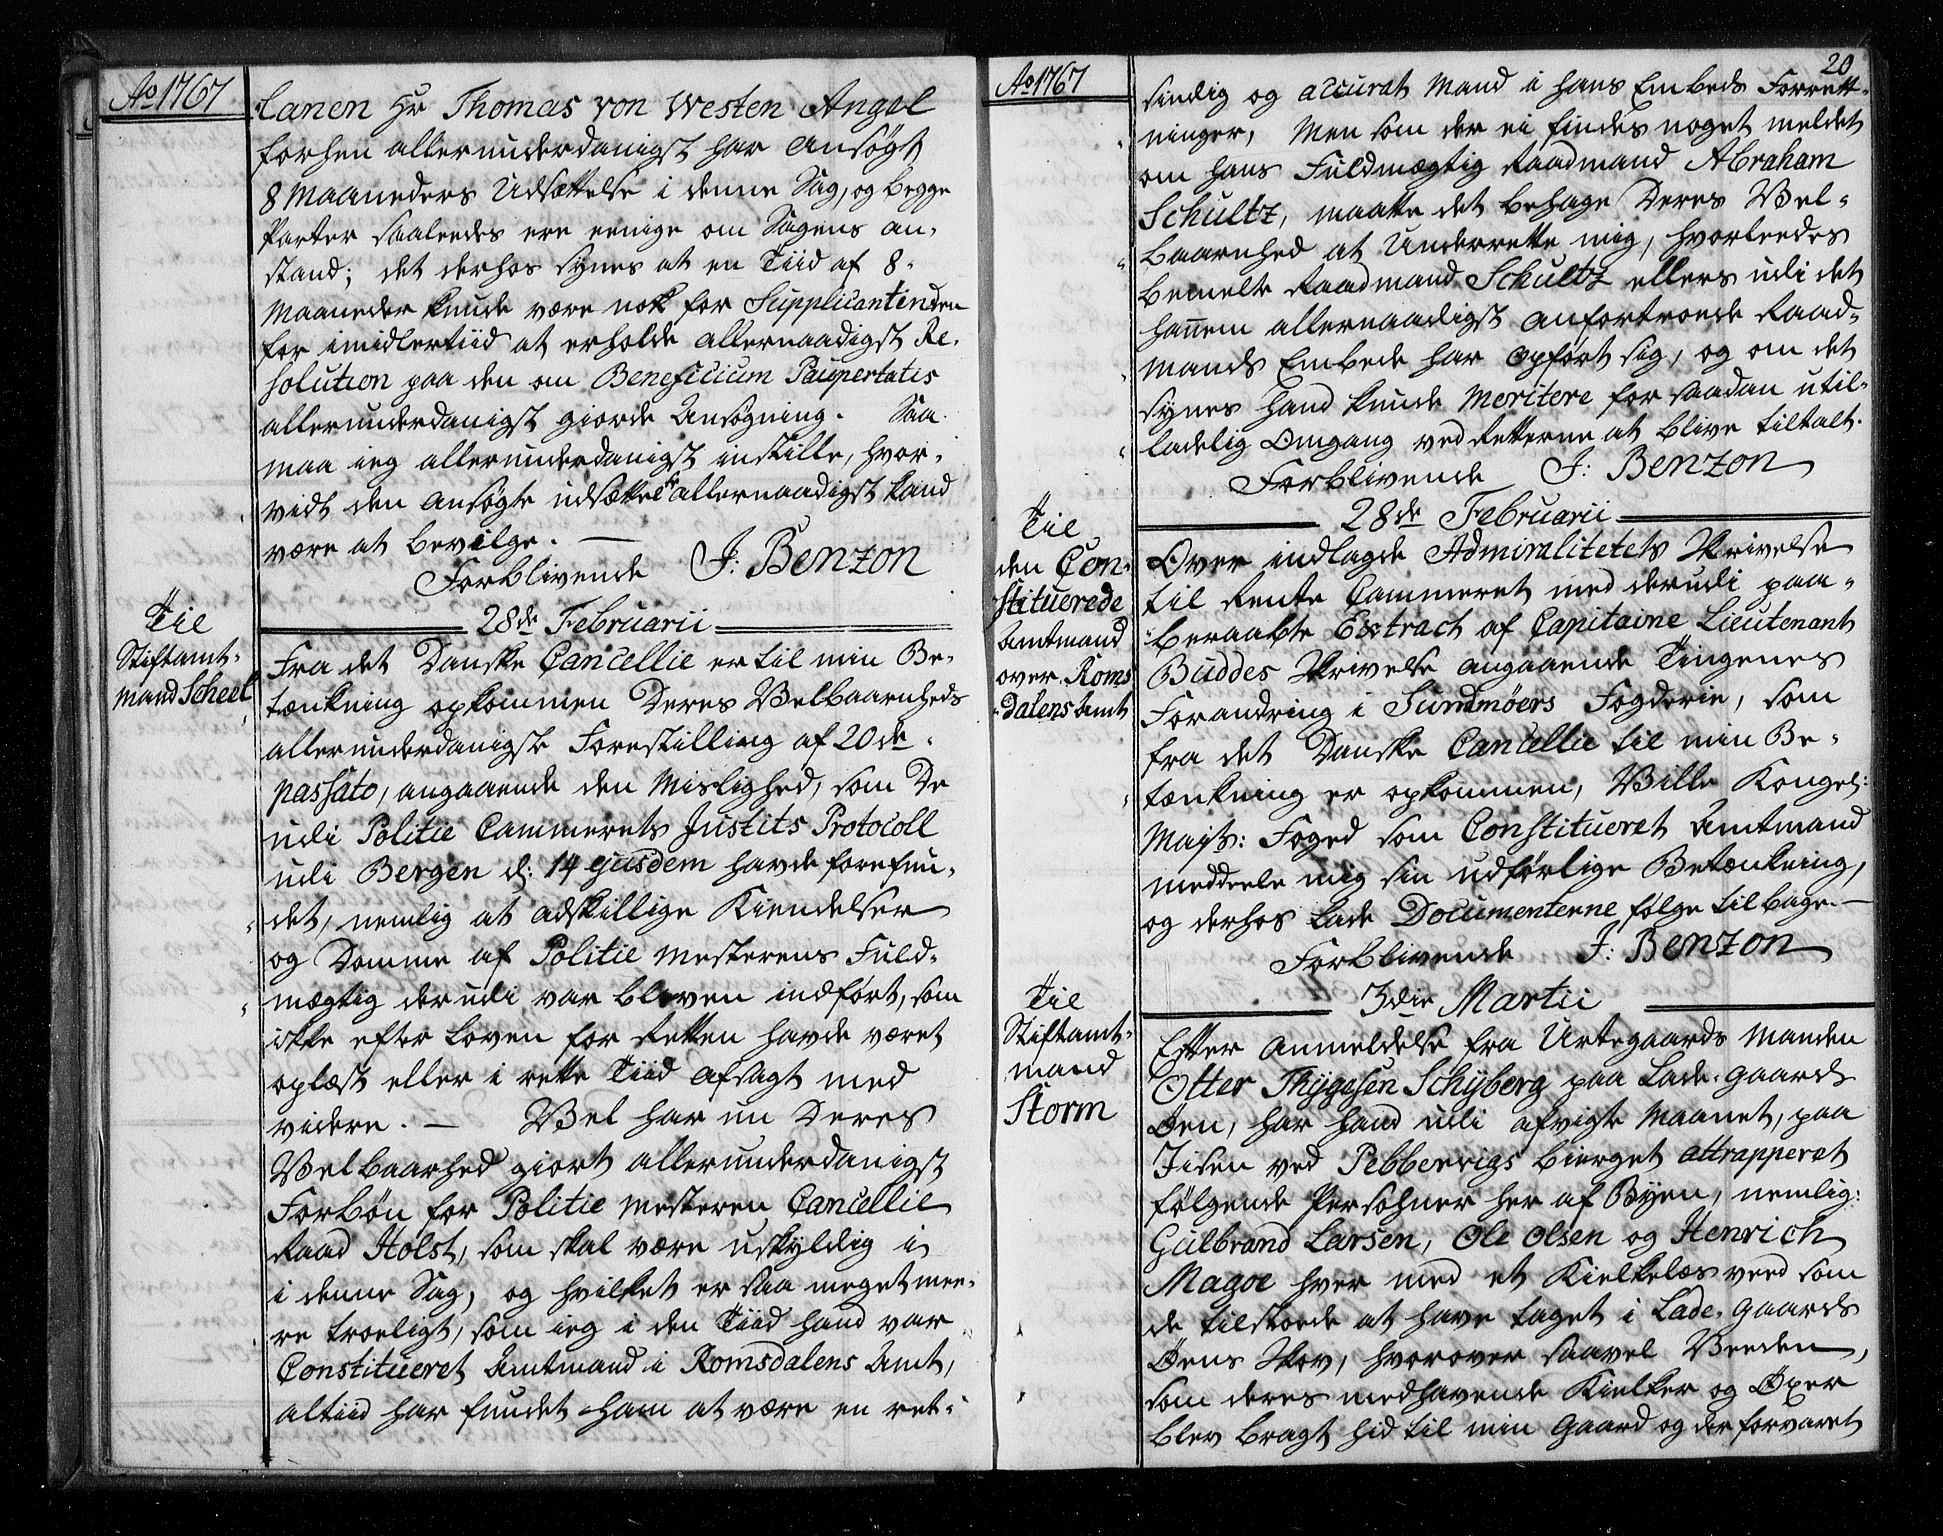 Ao 1767
Canen Hr Thomas von Westen Angel
forhen allerunderdanigst har Ansøgt
8 Maaneders Udsættelse i denne Sag, og begge
Parter saaleedes ere eenige om Sagens an-
stand; det derhos synes at en Tiid af 8-
Maaneder kunde være nok for Supplicantinden
for imidlertiid at erholde allernaadigst Re-
solution paa den om Beneficium Paupertatis
allerunderdanigst giorde Ansøgning. Saa
maa ieg allerunderdanigst instille, hvor-
vidt den ansøgte udsættelse allernaadigst kand
være at bevilge. —
Forblivende J: Benzon
28de Februarii
Til
Stiftamt-
mand Scheel
Fra det Danske Cancellie er til min Be-
tænkning opkommen Deres Velbaarnheds
allerunderdanigste Forestilling af 20de
passato, angaaende den Mislighed, som De
udi Politie Cammerets Justits Protocoll
udi Bergen d: 14 ejusdem havde forefun-
det, nemlig at adskillige Kiendelser
og Domme af Politie Mesterens Fuld-
mægtig derudi var bleven indført, som
ikke efter Loven for Retten havde været
oplæst eller i rette Tiid afsagt med
videre. — Vel har nu Deres
Velbaarhed giort allerunderdanigst
Forbøn for Politie Mesteren Cancellie
Raad Holst, som skal være uskyldig i
i denne Sag, og hvilket er saa meget mee-
re troeligt, som ieg i den Tiid hand var
Constitueret Amtmand i Romsdalens Amt,
altiid har fundet ham at være en ret-
Ao 1767
20
sindig og accurat Mand i hans Embeds Forrett-
ninger, Men som der ei findes noget meldet
om hans Fuldmægtig Raadmand Abraham
Schultz, maatte det behage Deres Vel-
baarnhed at Underrette mig, hvorleedes
bemelte Raadmand Schultz ellers udi det
hannem allernaadigst anfortroede Raad-
mands Embede har opført sig, og om det
synes hand kunde Meritere for saadan util-
ladelig Omgang ved Retterne at blive tiltalt.
Forblivende J: Benzon
28de Februarii
Til
den Con-
stituerede
Amtmand
over Roms
dalens Amt
Over indlagde Admiralitetets Skrivelse
til Rente Cammeret med derudi paa-
beraabte Extract af Capitaine Lieutenant
Buddes Skrivelse angaaende Tingenes
Forandring i Sundmøers Fogderie, som
fra det Danske Cancellie til min Be-
tænkning er opkommen, Ville Kongel:
Majts: Foged som Constitueret Amtmand
meddeele mig sin udførlige Betænkning,
og derhos lade Documenterne følge tilbage. —
Forblivende J: Benzon
3die Martii
Til
Stiftamt-
mand
Storm
Efter Anmeldelse fra Urtegaards Manden
Otter Thygesen Schyberg paa Lade-gaards
Øen, har hand udi afvigte Maanet, paa
Jisen ved Pebbervigs bierget attrapperet
følgende Persohner her af Byen, nemlig:
Gulbrand Larsen, Ole Olsen og Henrich
Magoe hver med et Kielkelæs veed som
de tilstoede at have taget i Lade-gaards
Øens Skov, hvorover saavel Veeden,
som deres medhavende Kielker og Øxer
blev bragt hid til min Gaard og der forvaret